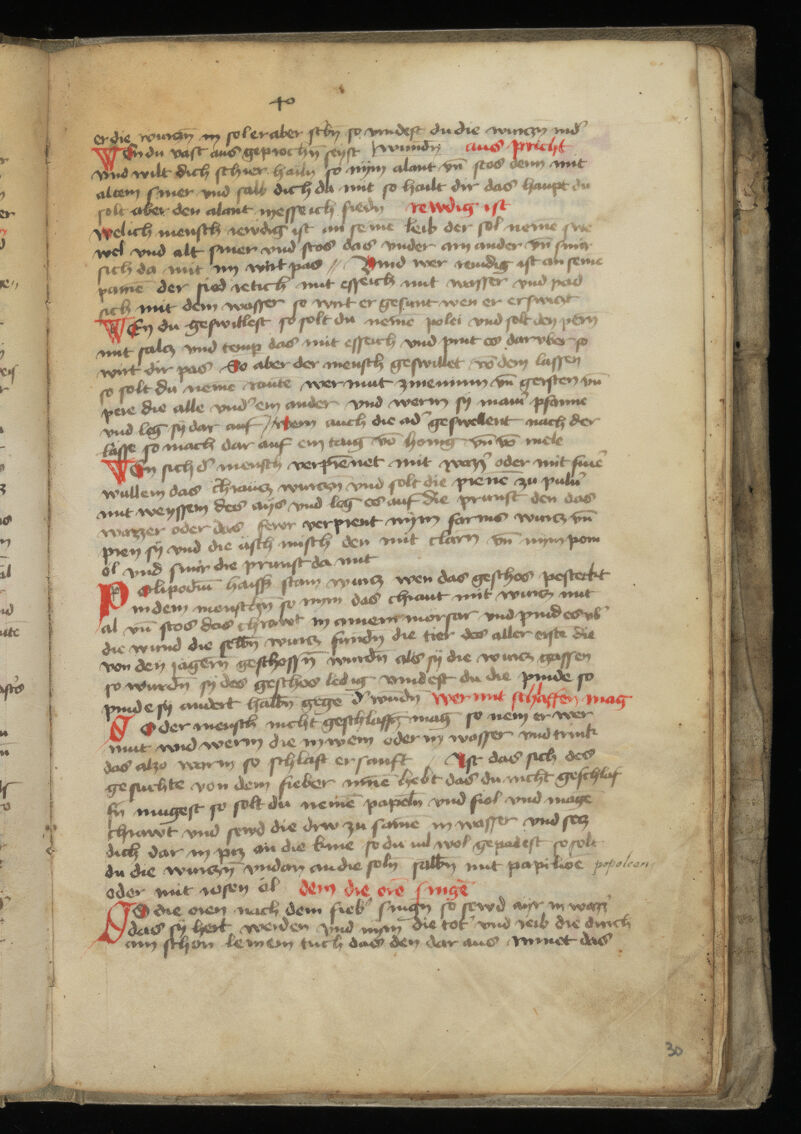 40
er die wurczn in sol er aber stbn so vindest du die wurczn nid
WEn du vast aus geprochn seyst wundn aus pricht
vnd wilt dich schier hailn so nym alant vn stos denn mit
altem smer vnd salb dich da mit so hailt dir das haupt du
solt aber den alant in esseich siedn rewdig ist
welich mensch rewdig ist an seine leib der sol neme swe
wel vnd alt smer vnd stos das vnder ain ander vn smir
sich da mit im wirt pas // Vnnd wer reudig ist an seine
painē der sied retich mit esseich mit wasser vnd pad
sich mit dem wasser so wirt er gesunt wen er erswiczt
WEn du geswillest so solt du nemē polei vnd solt den pern
mit salcz vnd temp das mit esseich vnd pint es dar vber so
wirt dir pas So aber der mensch geswillet vō dem lassen
so solt du neme raute wermut vn gersten vn
pere die alle vnd ein ander vnd werm sy in ainer pfanne
vnd leg sy dar auf // Wem auch die ad geswellent nach der
lasse so mach dar auf ein taig vō honig vn vō mele
WEn sich d mensch verprennet mit wazz oder mit fiue
wullem das chrautz wurczn vnd solt die prene zu pulu
mit weyssem des ays vnd leg es auf die prunst den das
wazzer oder das fewr verprent nym farms wurcz vn
pren sy vnd die asch misch den mit clarn vn mit pom
ol vnd smir die prunst da mit
POlipodiū haisst stain wurcz wen das geschos pesteckt
in dem menschn so nym das chraut mit wurcz mit
al vn stos das chrawt in ainem morser vnd pind es vb
die wund die selbn wurcz fundn die tier des aller erstn die
von den jägern geschossn wurdn als sy die wurcz gassen
so wurdn sy des geschos ledig vindest du die pinde so
pinde sy andert halbn gege d wundn wer nit schlaffen mag
SO der mensch nicht geschlaffn mag so nem er wer
mut vnd werm die in wein oder in wasser vnd trink
das alzo warm so schlaft er sanft // Ist das sich des
gesuchte von dem fieber hebt das du nicht geschlaf
fn mugest so solt du nemē papeln vnd fiol vnd mage
chrawt vnd sewd die drew zu same in wasser vnd secz
dich dar in pis an die knie so du wol gepadest so solt
du die wurczn vndan an die soln salbn mit papilioe popoleon
oder mit rosen ol dem die ore singe
SO die oren nach dem fieb singn so sewd ayr in wazz
das sy hert werden vnd nym die tot vnd reib die durch
ain schon leinein tuch das den dar aus rinnet das
30